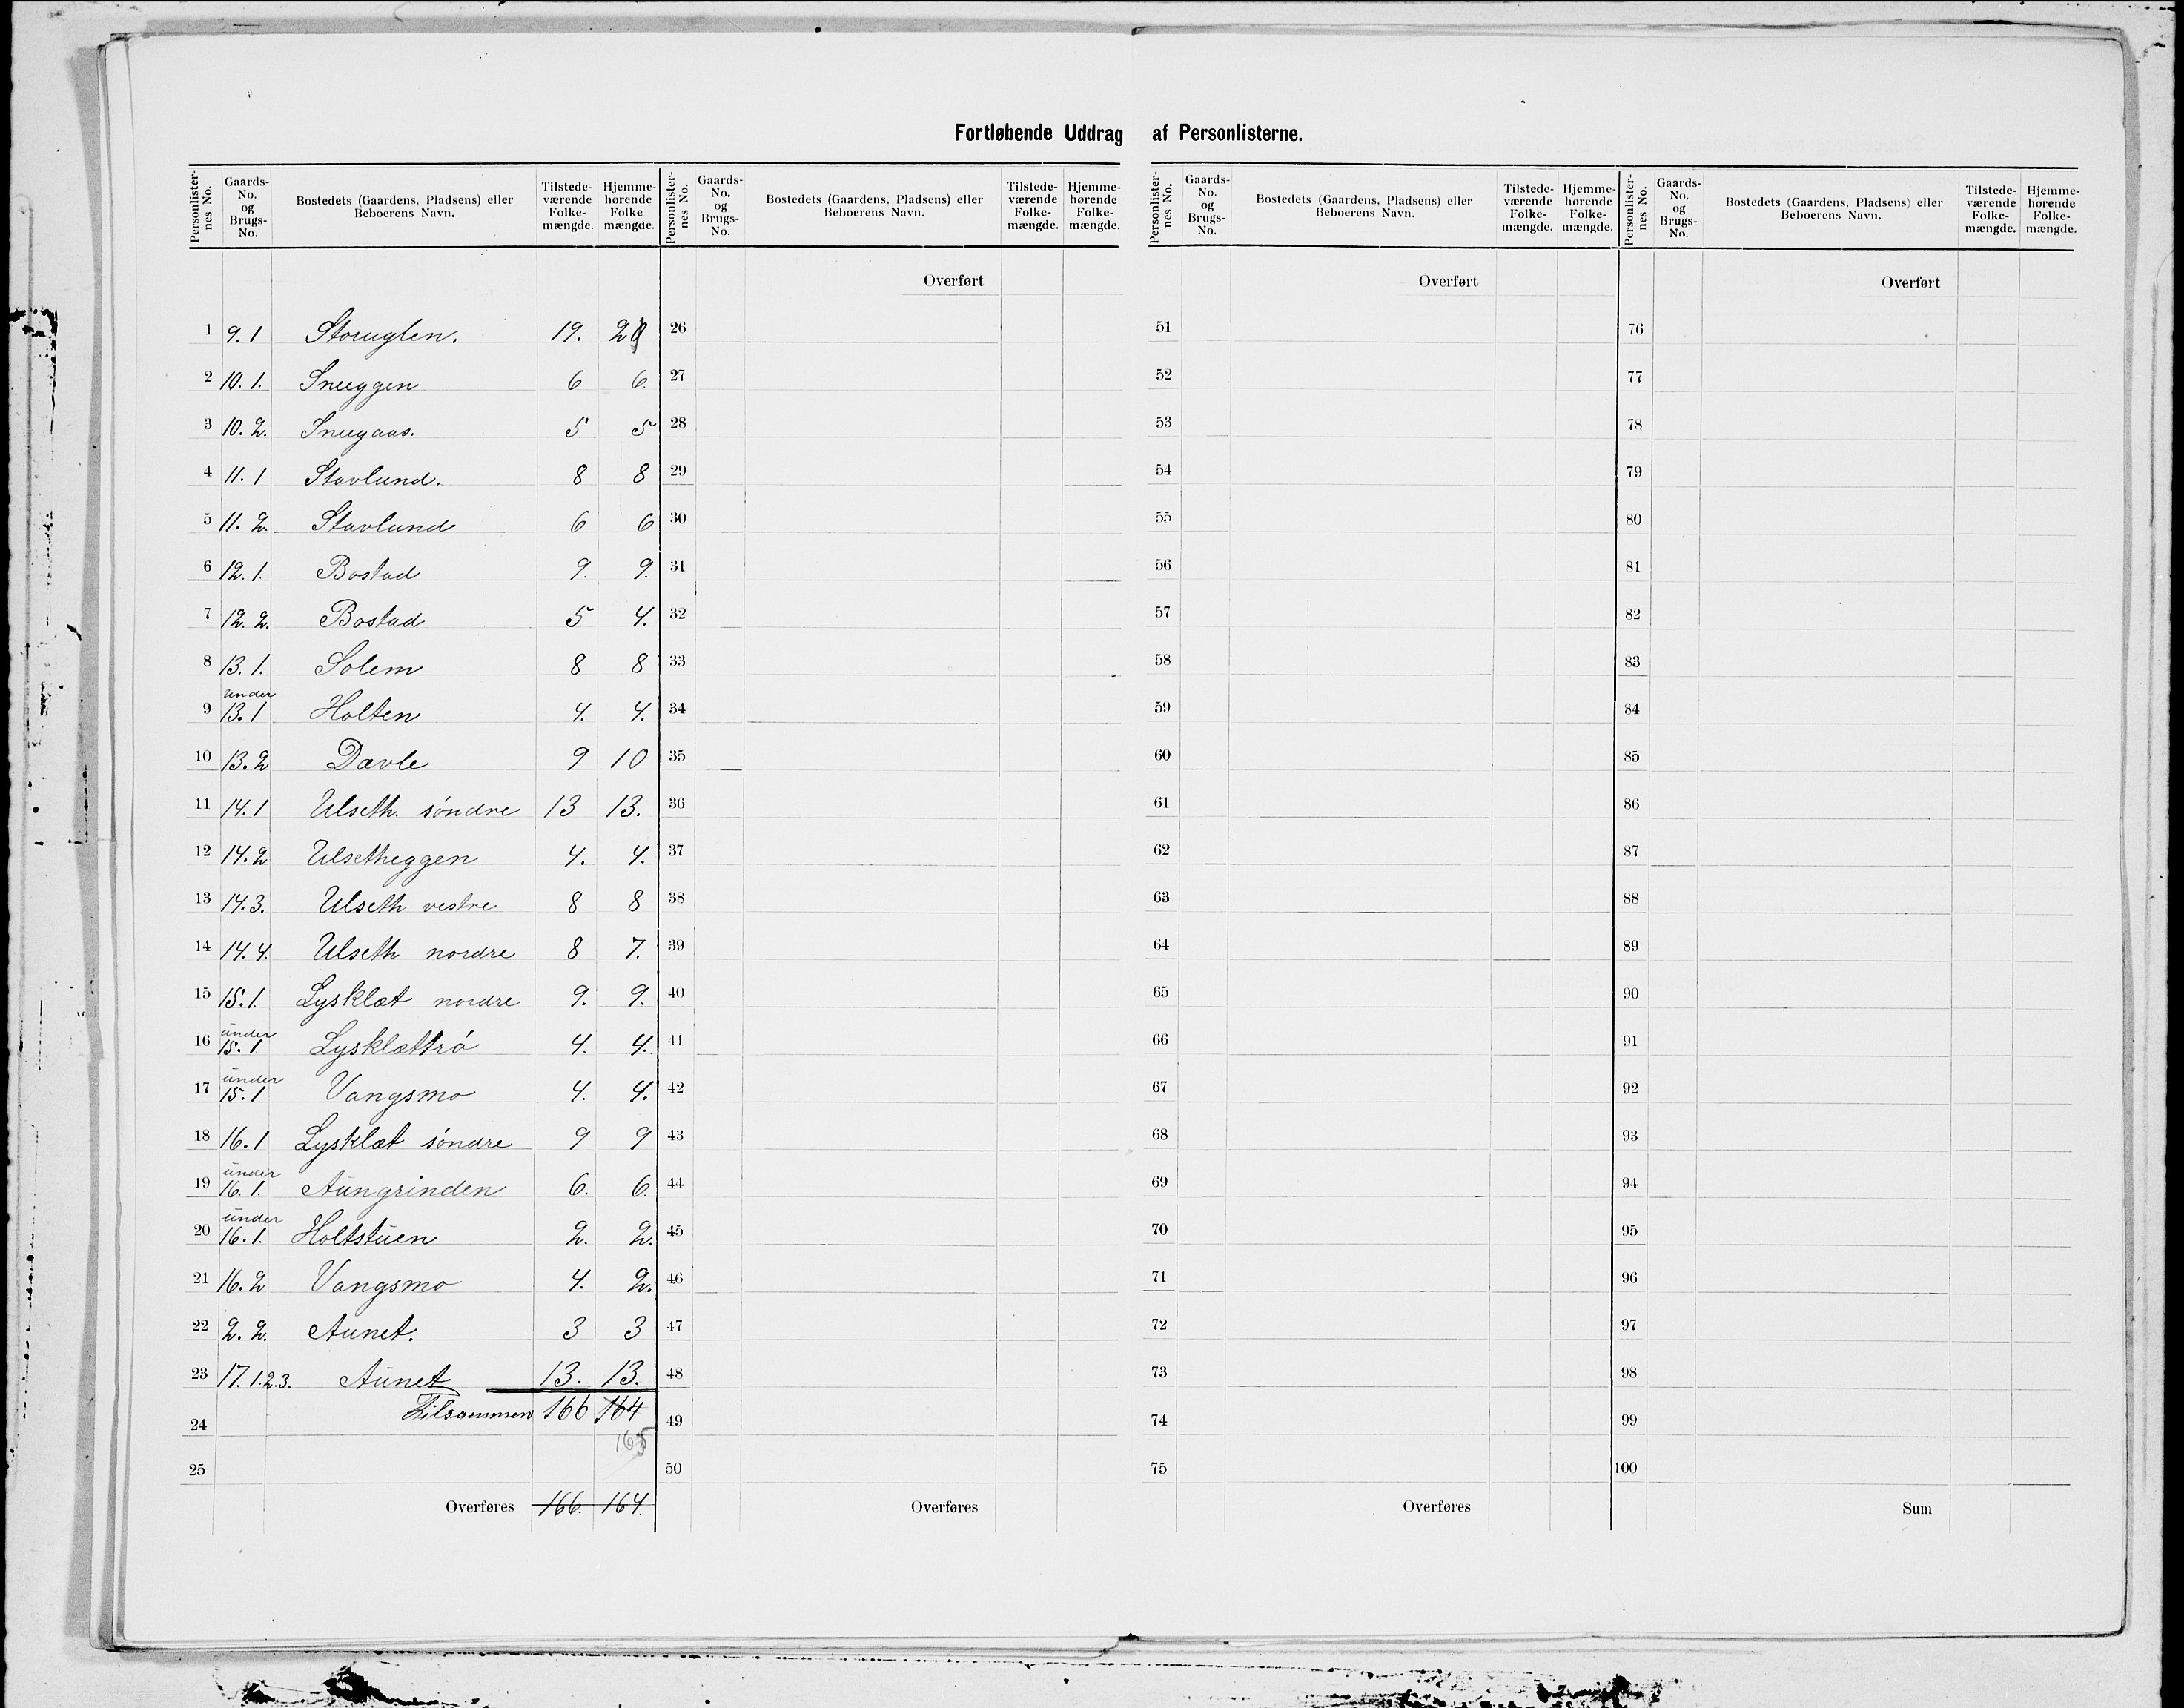 Fortløbende Uddrag af Personlisterne.
Personlister-nes No. Gaards-No. og Brugs-No. Bostedets (Gaardens, Pladsens) eller Beboerens Navn. Tilstede-værende Folke-mængde. Hjemme-hørende Folke mængde. Personlister-nes No. Gaards-No. og Brugs-No. Bostedets (Gaardens, Pladsens) eller Beboerens Navn. Tilstede-værende Folke-mængde. Hjemme-hørende Folke-mængde. Personlister-nes No. Gaards-No. og Brugs-No. Bostedets (Gaardens, Pladsens) eller Beboerens Navn. Tilstede-værende Folke-mængde. Hjemme-hørende Folke-mængde. Personlister-nes No. Gaards-No. og Brugs-No. Bostedets (Gaardens, Pladsens) eller Beboerens Navn. Tilstede-værende Folke-mængde. Hjemme-hørende Folke-mængde.
Overført Overført Overført
1 9.1 Storuglen. 19. 26 51 76
2 10.1. Sneeggen 6 6. 27 52 77
3 10.2. Sneegaas. 5 5 28 53 78
4 11.1 Stavlund. 8 8 29 54 79
5 11.2. Stavlund 6 6 30 55 80
6 12.1. Bostad 9. 9. 31 56 81
7 12.2. Bostad 5 4. 32 57 82
8 13.1. Solem 8 8 33 58 83
9 under 13.1 Holten 4. 4. 34 59 84
10 13.2 Dævle 9 10 35 60 85
11 14.1 Ulseth. søndre 13 13. 36 61 86
12 14.2 Ulsetheggen 4. 4. 37 62 87
13 14.3. Ulseth vestre 8 8 38 63 88
14 14.4. Ulseth nordre 8 7. 39 64 89
15 15.1. Lysklæt nordre 9. 9. 40 65 90
16 under 15.1 Lysklættrø 4. 4. 41 66 91
17 under 15.1 Vangsmo 4. 4. 42 67 92
18 16.1 Lysklæt søndre 9 9 43 68 93
19 under 16.1. Aungrinden 6. 6. 44 69 94
20 under 16.1. Holtstuen 2. 2. 45 70 95
21 16.2 Vangsmo 4. 2. 46 71 96
22 2.2. Aunet. 3 3 47 72 97
23 17.1.2.3. Aunet 13. 13. 48 73 98
24 Tilsammen 166 164 49 74 99
165
25 50 75 100
Overføres 166. 164. Overføres Overføres Sum